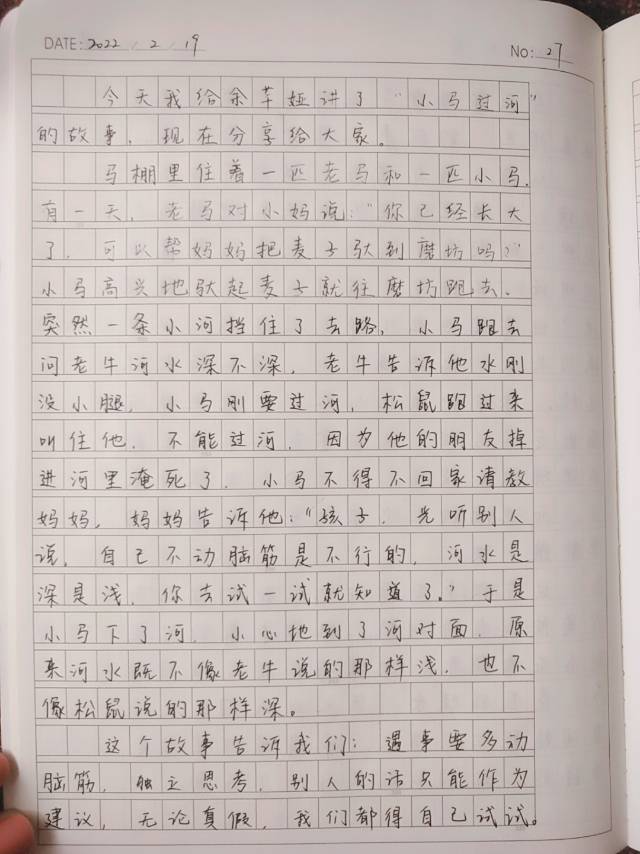 DATE: 2022 / 2 / 19
No: 27
今天我给余芊娅讲了"小马过河"
的故事，现在分享给大家。
马棚里住着一匹老马和一匹小马，
有一天，老马对小妈说："你已经长大
了，可以帮妈妈把麦子驮到磨坊吗？"
小马高兴地驮起麦子就往磨坊跑去。
突然一条小河挡住了去路，小马跑去
问老牛河水深不深，老牛告诉他水刚
没小腿，小马刚要过河，松鼠跑过来
叫住他，不能过河，因为他的朋友掉
进河里淹死了，小马不得不回家请教
妈妈，妈妈告诉他："孩子，光听别人
说，自己不动脑筋是不行的，河水是
深是浅，你去试一试就知道了。"于是
小马下了河，小心地到了河对面，原
来河水既不像老牛说的那样浅，也不
像松鼠说的那样深。
这个故事告诉我们：遇事要多动
脑筋，独立思考，别人的话只能作为
建议，无论真假，我们都得自己试试。